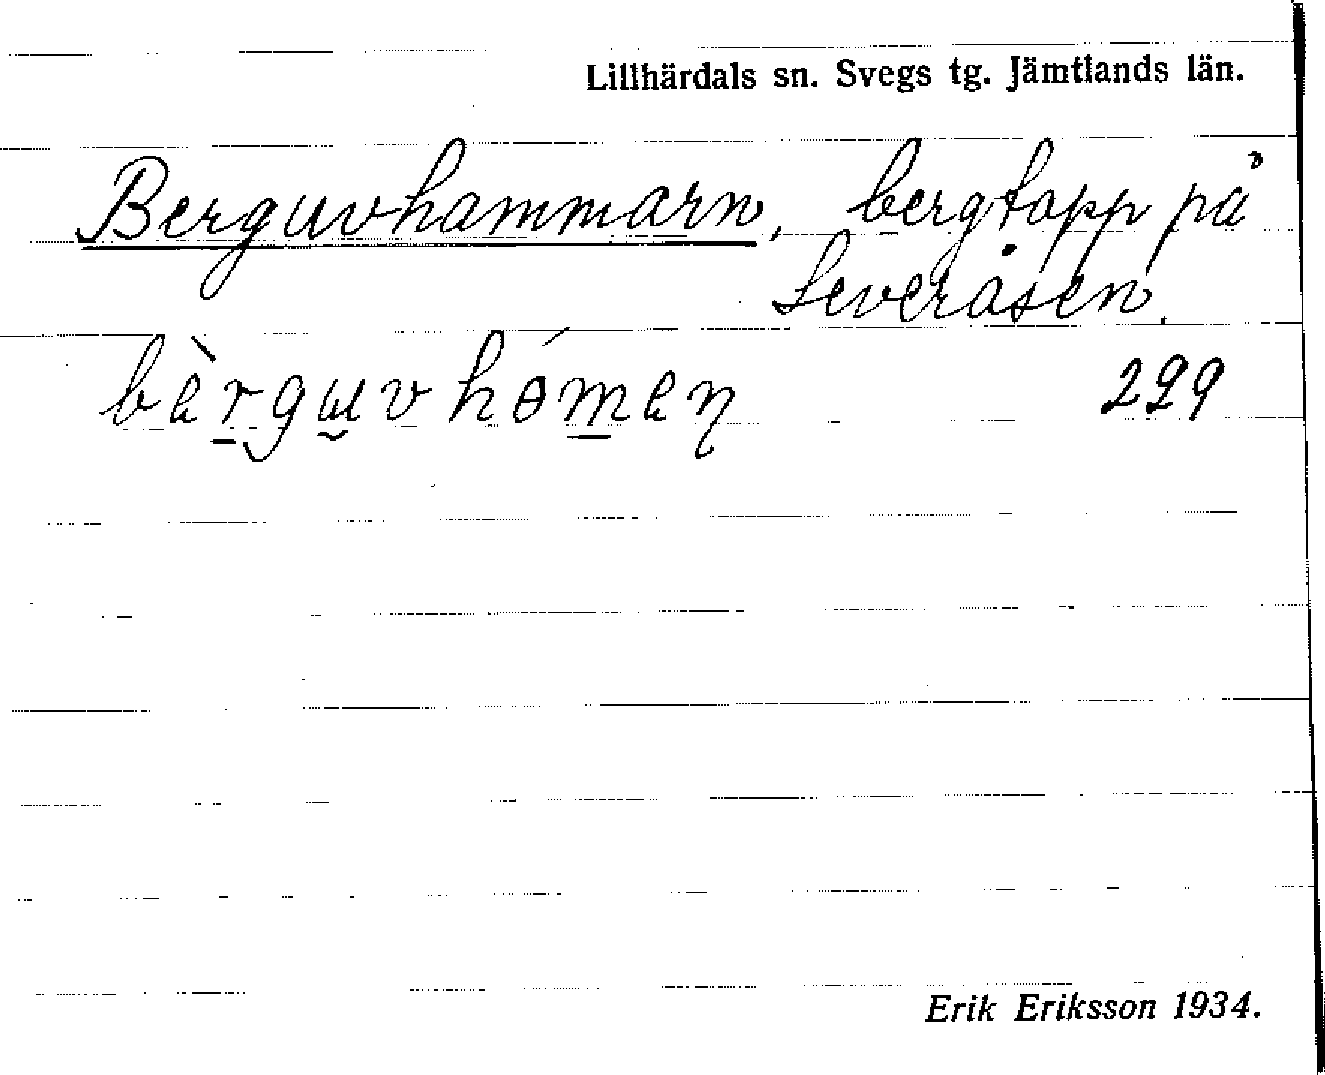 Lillhärdals sn. Svegs tg. Jämtlands län.
Berguvhammarn, bergtopp på
Leveråsen.
bèrguvhómeη 299
Erik Eriksson 1934.